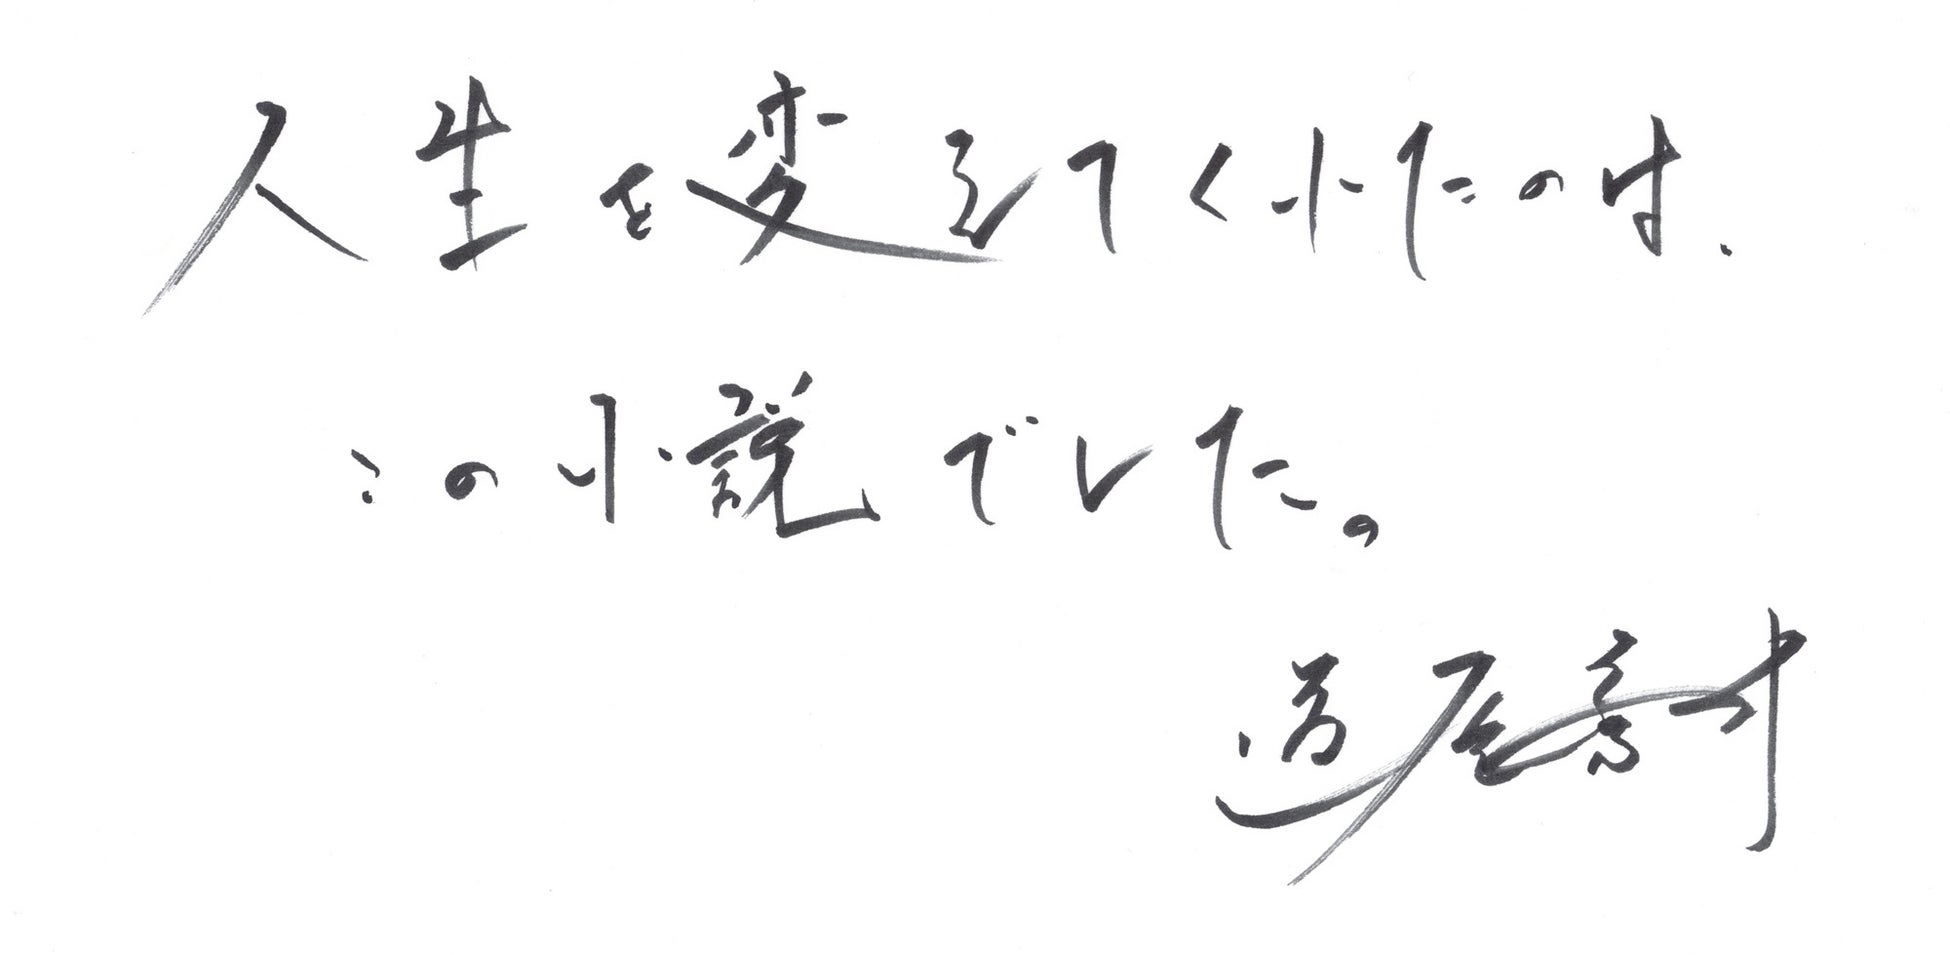 人生を変えてくれたのは、
この小説でした。
道尾秀介